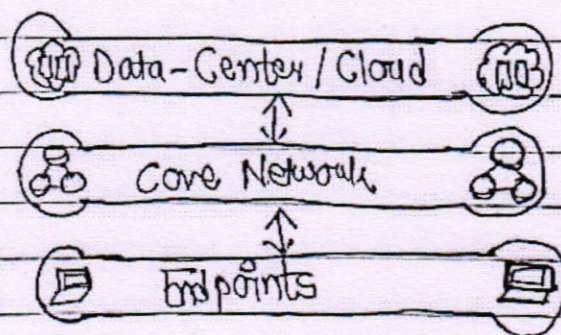 Data-Center / Cloud
Core Network
Endpoints